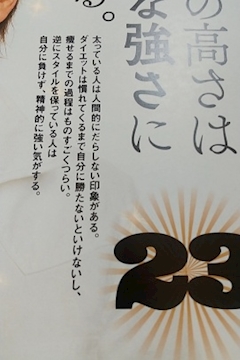 る。
の高さは
な強さに
太っている人は人間的にだらしない印象がある。
ダイエットは慣れてくるまで自分に勝たないといけないし、
痩せるまでの過程はものすごくつらい。
逆にスタイルを保っている人は
自分に負けず、精神的に強い気がする。
23